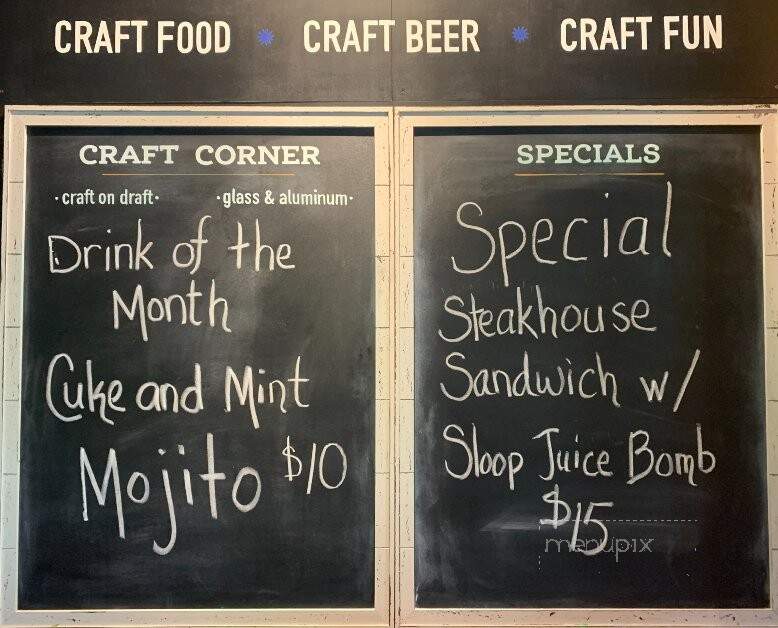 CRAFT FOOD * CRAFT BEER * CRAFT FUN
CRAFT CORNER
· craft on draft · · glass & aluminum ·
Drink of the
Month
Cuke and Mint
Mojito $10
SPECIALS
Special
Steakhouse
Sandwich w/
Sloop Juice Bomb
$15
menupix